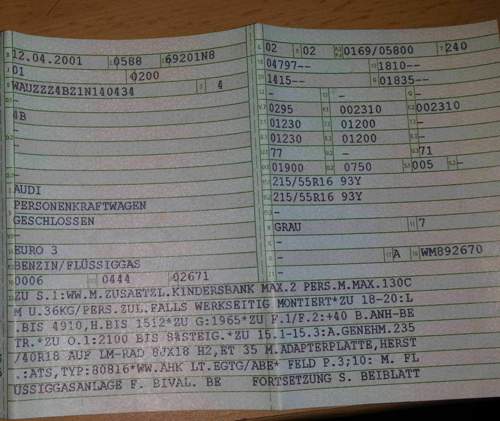 12.04.2001 0588 69201N8
01 0200
WAUZZZ4BZ1N140434 4
-
4B
-
-
-
-
AUDI
PERSONENKRAFTWAGEN
GESCHLOSSEN
-
EURO 3
BENZIN/FLÜSSIGGAS
0006 0444 02671
02 02 0169/05800 240
04797-- 1810--
1415-- 01835--
- - -
0295 002310 002310
01230 01200 -
01230 01200 -
77 - 71
01900 0750 005 -
215/55R16 93Y
215/55R16 93Y
-
GRAU 7
-
- A WM892670
-
ZU S.1:WW.M.ZUSAETZL.KINDERSBANK MAX.2 PERS.M.MAX.130C
M U.36KG/PERS.ZUL.FALLS WERKSEITIG MONTIERT*ZU 18-20:L
.BIS 4910,H.BIS 1512*ZU G:1965*ZU F.1/F.2:+40 B.ANH-BE
TR.*ZU O.1:2100 BIS 8%STEIG.*ZU 15.1-15.3:A.GENEHM.235
/40R18 AUF LM-RAD 8JX18 H2,ET 35 M.ADAPTERPLATTE,HERST
.:ATS,TYP:80816*WW.AHK LT.EGTG/ABE* FELD P.3;10: M. FL
ÜSSIGGASANLAGE F. BIVAL. BE FORTSETZUNG S. BEIBLATT